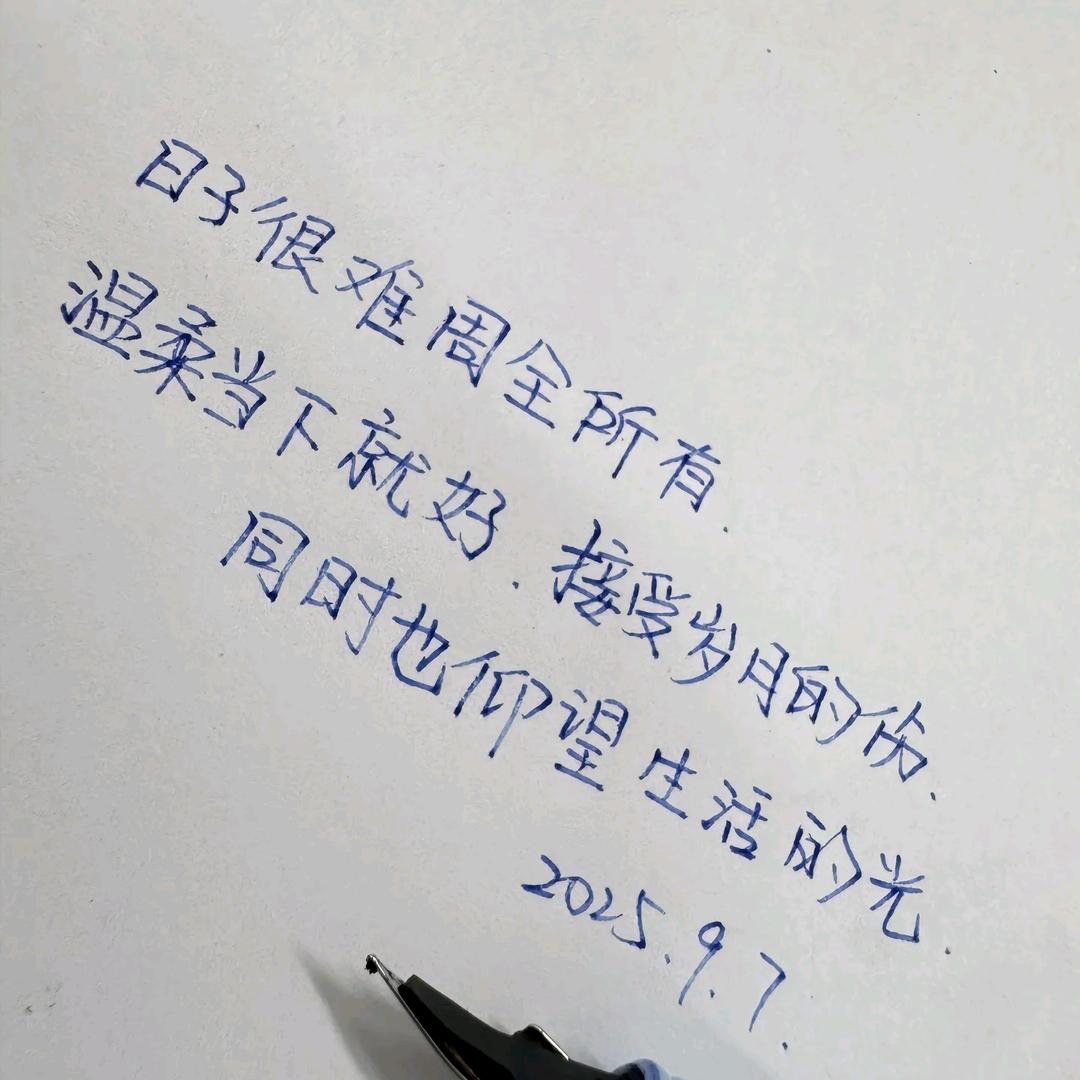 日子很难周全所有.
温柔当下就好.接受岁月的伤.
同时也仰望生活的光.
2025.9.7.